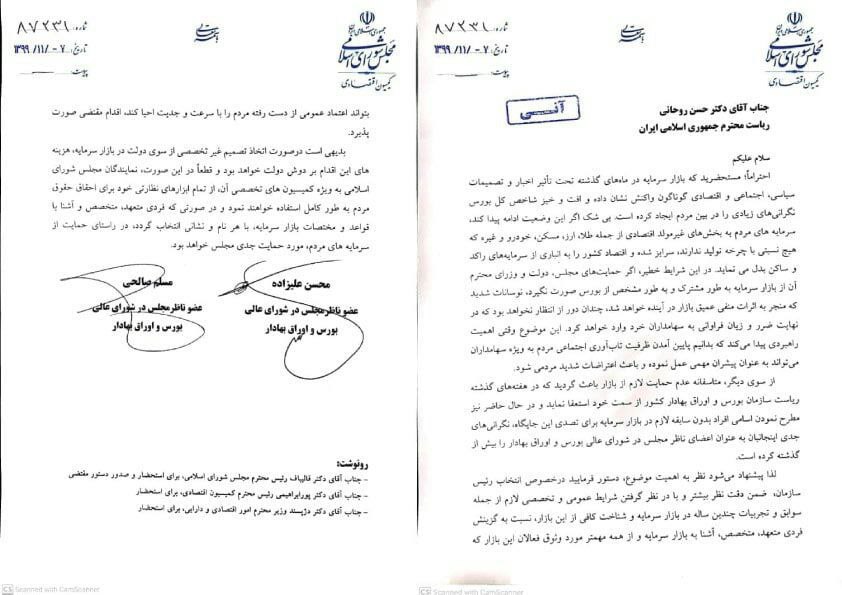 جمهوری اسلامی ایران
مجلس شورای اسلامی
کمیسیون اقتصادی
شماره: ۸۷۲۳۱
تاریخ: ۷-/۱۱/۱۳۹۹
پیوست:
آنــی
جناب آقای دکتر حسن روحانی
ریاست محترم جمهوری اسلامی ایران
سلام علیکم
احتراماً؛ مستحضرید که بازار سرمایه در ماه‌های گذشته تحت تأثیر اخبار و تصمیمات
سیاسی، اجتماعی و اقتصادی گوناگون واکنش نشان داده و افت و خیز شاخص کل بورس
نگرانی‌های زیادی را در بین مردم ایجاد کرده است. بی شک اگر این وضعیت ادامه پیدا کند،
سرمایه های مردم به بخش‌های غیرمولد اقتصادی از جمله طلا، ارز، مسکن، خودرو و غیره که
هیچ نسبتی با چرخه تولید ندارند، سرایز شده و اقتصاد کشور را به انباری از سرمایه‌های راکد
و ساکن بدل می نماید. در این شرایط خطیر، اگر حمایت‌های مجلس، دولت و وزرای محترم
آن از بازار سرمایه به طور مشترک و به طور مشخص از بورس صورت نگیرد، نوسانات شدید
که منجر به اثرات منفی عمیق بازار در آینده خواهد شد، چندان دور از انتظار نخواهد بود که در
نهایت ضرر و زیان فراوانی به سهامداران خرد وارد خواهد کرد. این موضوع وقتی اهمیت
راهبردی پیدا می‌کند که بدانیم پایین آمدن ظرفیت تاب‌آوری اجتماعی مردم به ویژه سهامداران
می‌تواند به عنوان پیشران مهمی عمل نموده و باعث اعتراضات شدید مردمی شود.
از سوی دیگر، متاسفانه عدم حمایت لازم از بازار باعث گردید که در هفته‌های گذشته
ریاست سازمان بورس و اوراق بهادار کشور از سمت خود استعفا نماید و در حال حاضر نیز
مطرح نمودن اسامی افراد بدون سابقه لازم در بازار سرمایه برای تصدی این جایگاه، نگرانی‌های
جدی اینجانبان به عنوان اعضای ناظر مجلس در شورای عالی بورس و اوراق بهادار را بیش از
گذشته کرده است.
لذا پیشنهاد می‌شود نظر به اهمیت موضوع، دستور فرمایید درخصوص انتخاب رئیس
سازمان، ضمن دقت نظر بیشتر و با در نظر گرفتن شرایط عمومی و تخصصی لازم از جمله
سوابق و تجربیات چندین ساله در بازار سرمایه و شناخت کافی از این بازار، نسبت به گزینش
فردی متعهد، متخصص، آشنا به بازار سرمایه و از همه مهمتر مورد وثوق فعالان این بازار که
CS Scanned with CamScanner
جمهوری اسلامی ایران
مجلس شورای اسلامی
کمیسیون اقتصادی
شماره: ۸۷۲۳۱
تاریخ: ۷-/۱۱/۱۳۹۹
پیوست:
بتواند اعتماد عمومی از دست رفته مردم را با سرعت و جدیت احیا کند، اقدام مقتضی صورت
پذیرد.
بدیهی است درصورت اتخاذ تصمیم غیر تخصصی از سوی دولت در بازار سرمایه، هزینه
های این اقدام بر دوش دولت خواهد بود و قطعاً در این صورت، نمایندگان مجلس شورای
اسلامی به ویژه کمیسیون های تخصصی آن، از تمام ابزارهای نظارتی خود برای احقاق حقوق
مردم به طور کامل استفاده خواهند نمود و در صورتی که فردی متعهد، متخصص و آشنا با
قواعد و مختصات بازار سرمایه، با هر نام و نشانی انتخاب گردد، در راستای حمایت از
سرمایه های مردم، مورد حمایت جدی مجلس خواهد بود.
محسن علیزاده
عضو ناظر مجلس در شورای عالی
بورس و اوراق بهادار
مسلم صالحی
عضو ناظر مجلس در شورای عالی
بورس و اوراق بهادار
رونوشت:
- جناب آقای دکتر قالیباف رئیس محترم مجلس شورای اسلامی، برای استحضار و صدور دستور مقتضی
- جناب آقای دکتر پورابراهیمی رئیس محترم کمیسیون اقتصادی، برای استحضار
- جناب آقای دکتر دژپسند وزیر محترم امور اقتصادی و دارایی، برای استحضار
CS Scanned with CamScanner